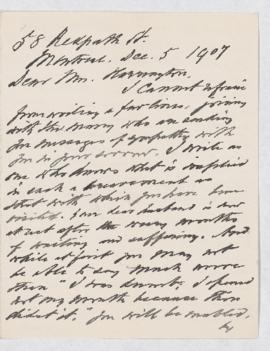 58 Redpath St.
Montreal. Dec. 5 1907
Dear Mrs. Harrington,
I cannot refrain
from writing a few lines, joining
with the many who are sending
you messages of sympathy with
you in your sorrow. I write as
one who knows what is implied
in such a bereavement as
that with which you have been
visited. Your dear husband is now
at rest after the weary months
of waiting and suffering. And
while at first you may not
be able to say much more
than "I was dumb, I opened
not my mouth because thou
didst it." you will be enabled,
by